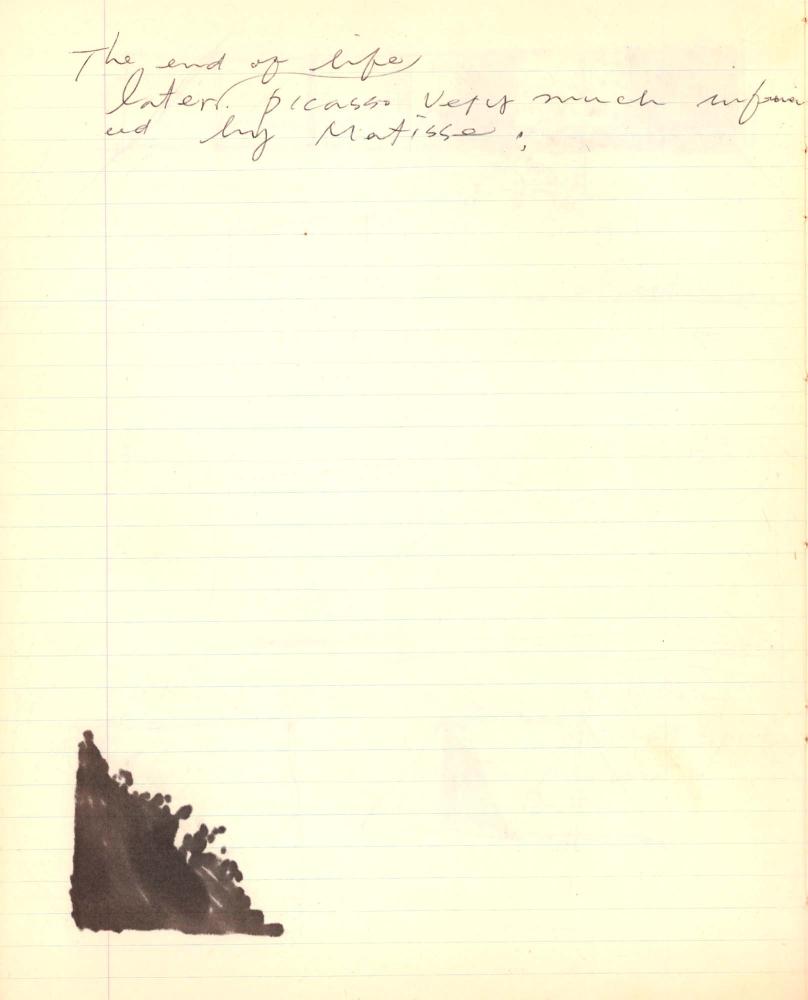 The end of life
later. picasso very much
ed by Matisse.